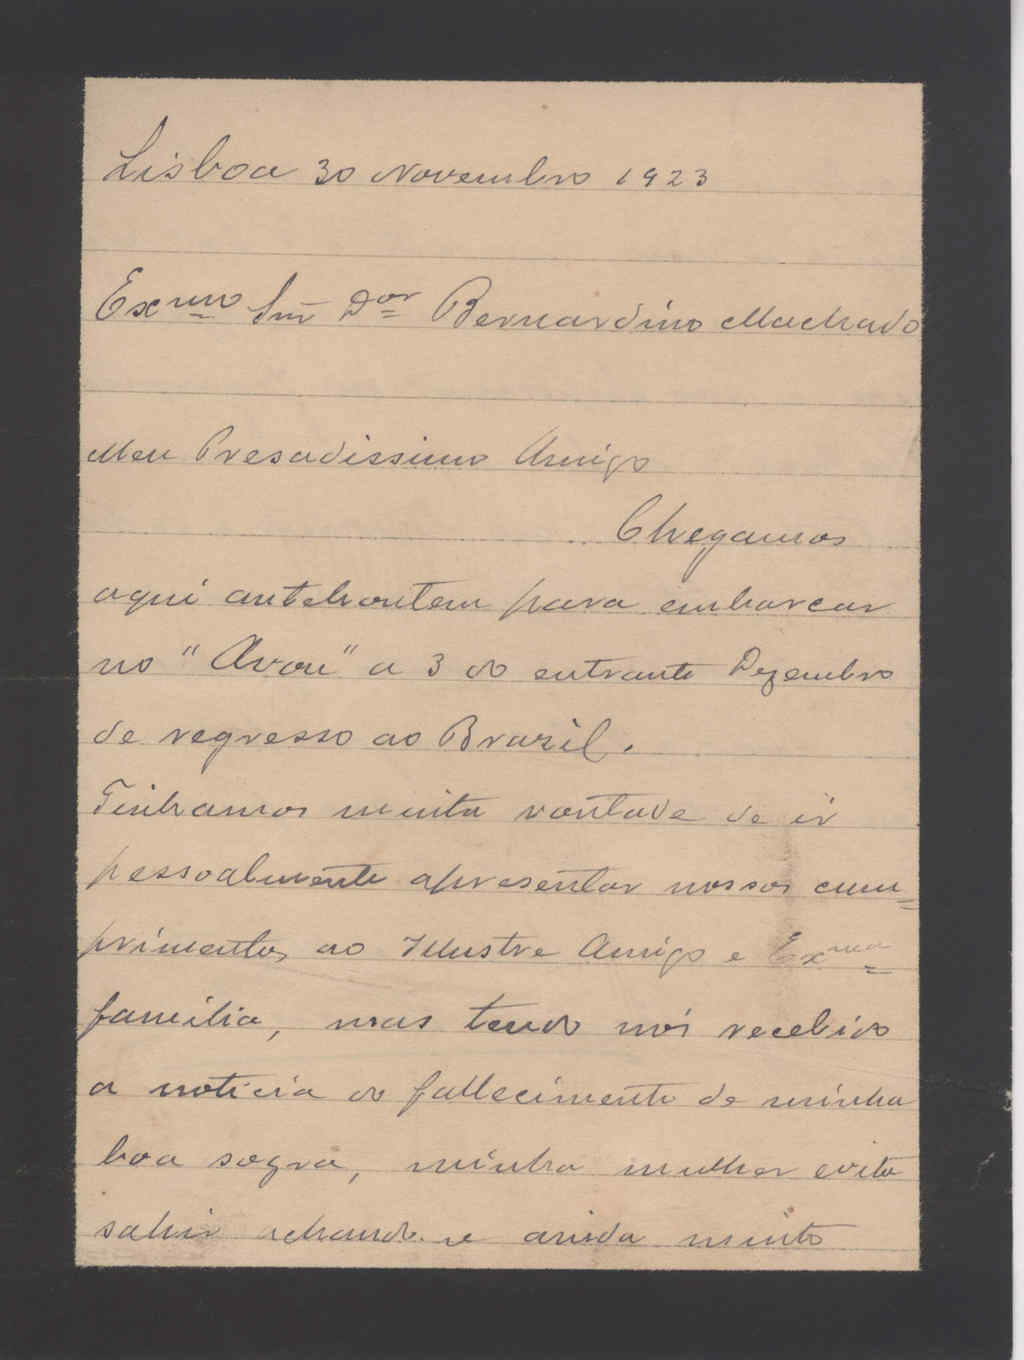 Lisboa 30 Novembro 1923
Exmo Snr Dor Bernardino Machado
Meu Presadissimo Amigo
Chegamos
aqui antehontem para embarcar
no "Avon" a 3 do entrante Dezembro
de regresso ao Brazil.
Tinhamos muita vontade de ir
pessoalmente apresentar nossos cum=
primentos ao Illustre Amigo e Exma
familia, mas tendo nós recebido
a noticia do fallecimento de minha
boa sogra, minha mulher evita
sahir achando-se ainda muito